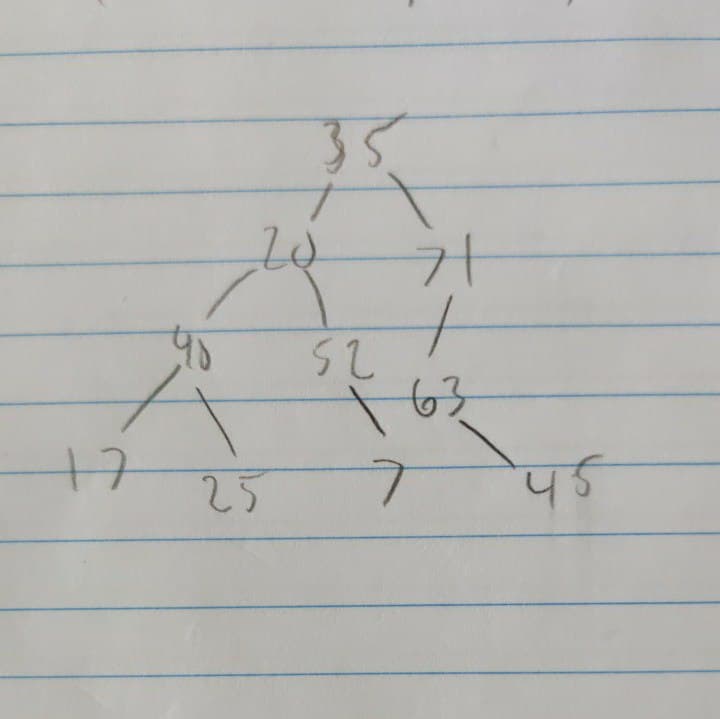 35
20 71
40 52
63
17 25 7 45